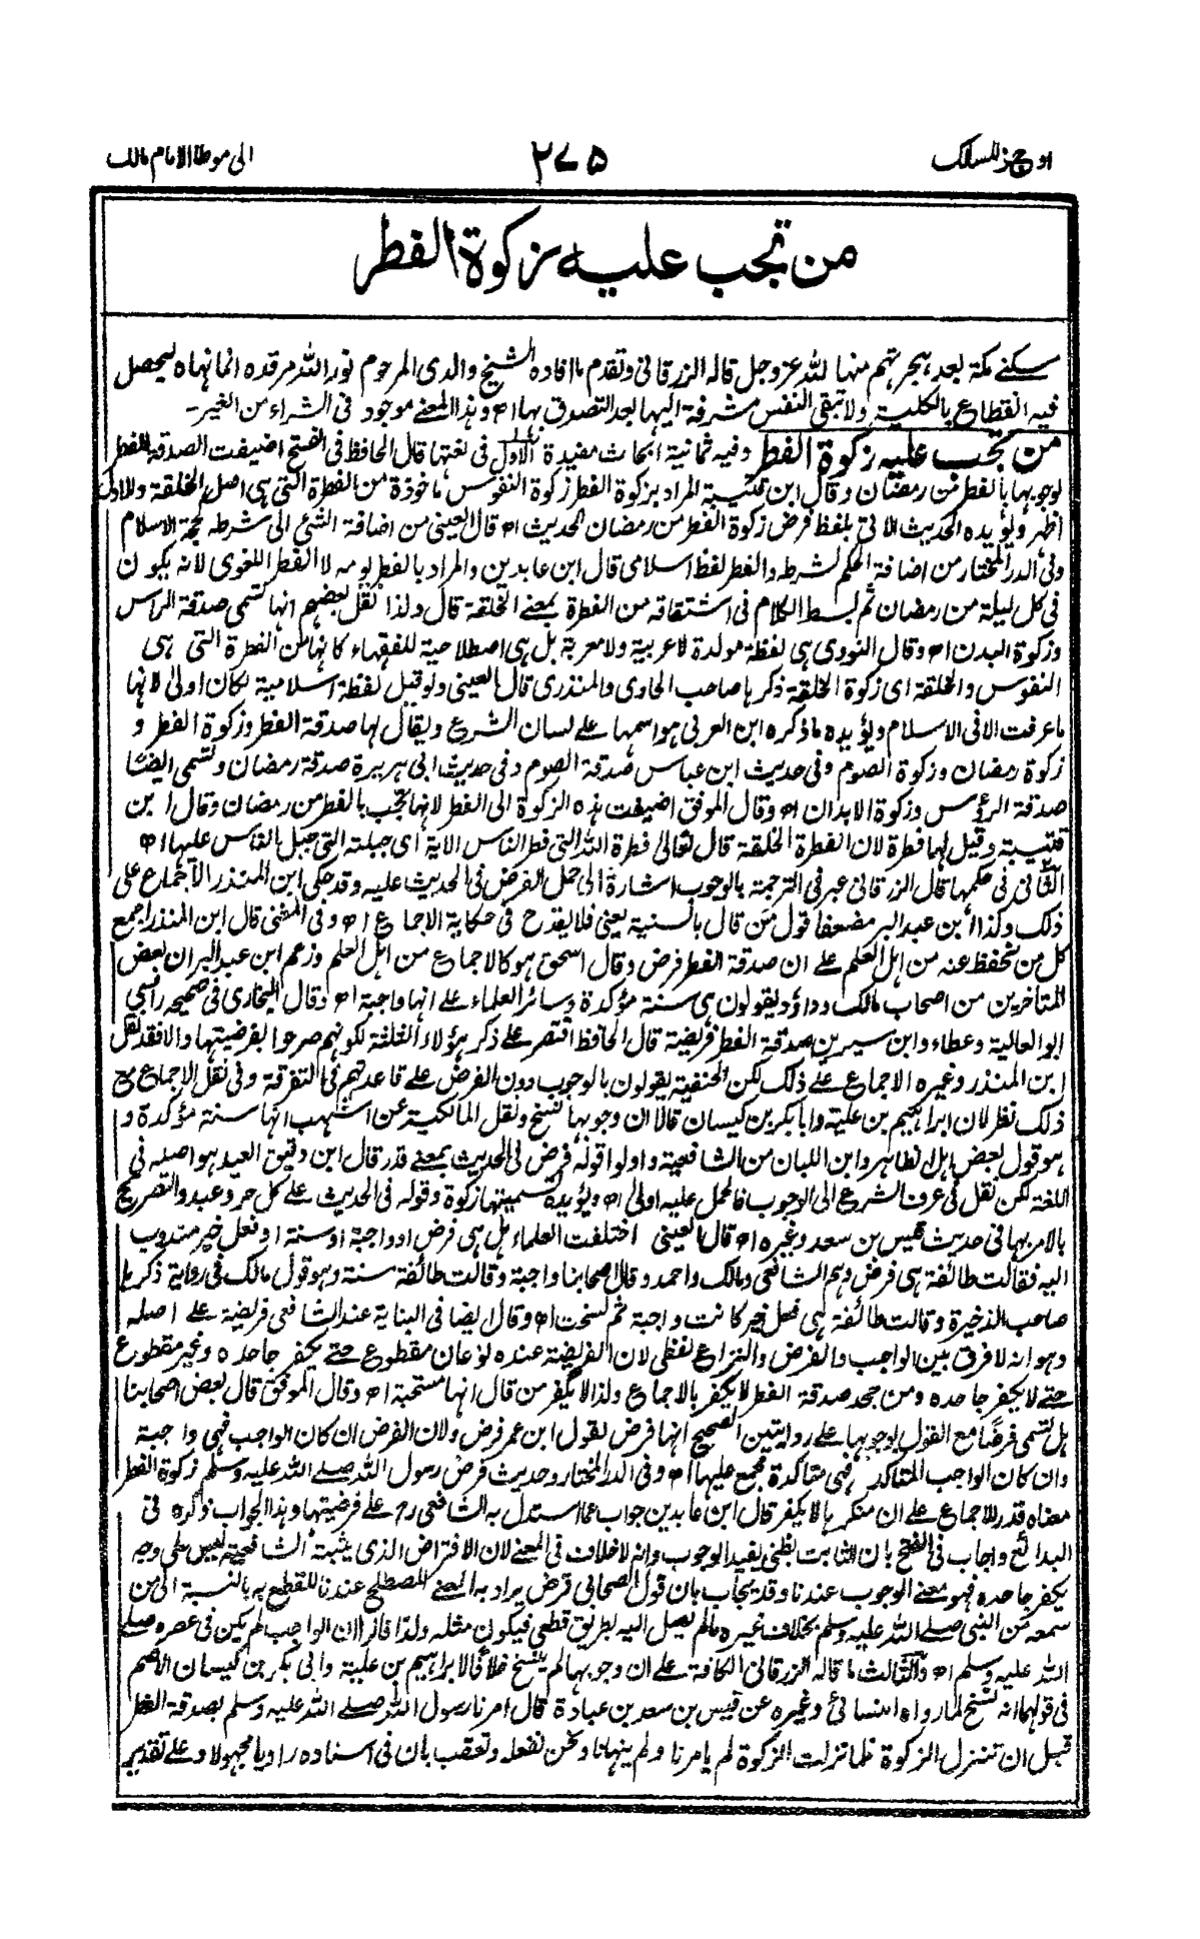 اوجز المسالك
٢٧٥
الى موطا الامام مالك
من تجب عليه زكوة الفطر
سكنے مكة بعد هجرتهم منها لله عزوجل قاله الزرقانى وتقدم ما افاده الشيخ والدى المرحوم نور الله مرقده انما نهاه ليحصل
فيه انقطاع بالكلية ولا تبقى النفس مشرفة اليها بعد التصدق بها اھ وهذا المعنے موجود فى الشراء من الغير۔
من تجب عليه زكوة الفطر وفيه ثمانية ابحاث مفيدة الاول فى لغتها قال الحافظ فى الفتح اضيفت الصدقة للفطر
لوجوبها بالفطر من رمضان وقال ابن قتيبة المراد بزكوة الفطر زكوة النفوس ماخوذة من الفطرة التى هى اصل الخلقة والاول
اظهر ويؤيده الحديث الاتى بلفظ فرض زكوة الفطر من رمضان الحديث اھ قال العينى من اضافة الشئ الى شرطه كحجة الاسلام
وفى الدر المختار من اضافة الحكم لشرطه والفطر لفظ اسلامى قال ابن عابدين والمراد بالفطر يومه لا الفطر اللغوى لانه يكون
فى كل ليلة من رمضان ثم بسط الكلام فى اشتقاقه من الفطرة بمعنے الخلقة قال ولذا نقل بعضهم انها تسمى صدقة الراس
وزكوة البدن اھ وقال النووى هى لفظة مولدة لا عربية ولا معربة بل هى اصطلاحية للفقهاء كانها من الفطرة التى هى
النفوس والخلقة اى زكوة الخلقة ذكرها صاحب الحاوى والمنذرى قال العينى ولو قيل لفظة اسلامية لكان اولى لانها
ما عرفت الا فى الاسلام ويؤيده ما ذكره ابن العربى هو اسمها علے لسان الشرع ويقال لها صدقة الفطر وزكوة الفطر و
زكوة رمضان وزكوة الصوم وفى حديث ابن عباس صدقة الصوم وفى حديث ابى هريرة صدقة رمضان وتسمى ايضا
صدقة الرؤس وزكوة الابدان اھ وقال الموفق اضيفت هذه الزكوة الى الفطر لانها تجب بالفطر من رمضان وقال ابن
قتيبة وقيل لها فطرة لان الفطرة الخلقة قال تعالى فطرة الله التى فطر الناس الاية اى جبلته التى جبل الناس عليها اھ
الثانى فى حكمها قال الزرقانى عبر فى الترجمة بالوجوب اشارة الى حمل الفرض فى الحديث عليه وقد حكى ابن المنذر الاجماع على
ذلك وكذا ابن عبد البر مضعفا قول من قال بالسنية يعنى فلا يقدح فى حكاية الاجماع اھ وفى المغنى قال ابن المنذر اجمع
كل من نحفظ عنه من اهل العلم علے ان صدقة الفطر فرض وقال اسحق هو كالاجماع من اهل العلم وزعم ابن عبد البر ان بعض
المتاخرين من اصحاب مالك وداؤد يقولون هى سنة مؤكدة وسائر العلماء علے انها واجبة اھ وقال البخارى فى صحيحه رأى
ابو العالية وعطاء وابن سيرين صدقة الفطر فريضة قال الحافظ اقتصر علے ذكر هؤلاء الثلثة لكونهم صرحوا بفرضيتها والا فقد نقل
ابن المنذر وغيره الاجماع علے ذلك لكن الحنفية يقولون بالوجوب دون الفرض علے قاعدتهم فى التفرقة وفى نقل الاجماع مع
ذلك نظر لان ابراهيم بن علية وابا بكر بن كيسان قالا ان وجوبها نسخ ونقل المالكية عن اشهب انها سنة مؤكدة و
هو قول بعض اهل الظاهر وابن اللبان من الشافعية واولوا قوله فرض فى الحديث بمعنے قدر قال ابن دقيق العيد هو اصله فى
اللغة لكن نقل فى عرف الشرع الى الوجوب فالحمل عليه اولى اھ ويؤيده تسميتها زكوة وقوله فى الحديث علے كل حر وعبد والتصريح
بالامر بها فى حديث قيس بن سعد وغيره اھ قال العينى اختلفت العلماء هل هى فرض او واجبة او سنة او فعل خير مندوب
اليه فقالت طائفة هى فرض وهم الشافعى ومالك واحمد وقال اصحابنا واجبة وقالت طائفة سنة وهو قول مالك فى رواية ذكرها
صاحب الذخيرة وقالت طائفة هى فعل خير كانت واجبة ثم نسخت اھ وقال ايضا فى البناية عند الشافعى فريضة علے اصله
وهو انه لا فرق بين الواجب والفرض والنزاع لفظى لان الفريضة عنده نوعان مقطوع حتے يكفر جاحده وغير مقطوع
حتے لا يكفر جاحده ومن جحد صدقة الفطر لا يكفر بالاجماع ولذا لا يكفر من قال انها مستحبة اھ وقال الموفق قال بعض اصحابنا
هل تسمى فرضًا مع القول بوجوبها علے روايتين الصحيح انها فرض لقول ابن عمر فرض ولان الفرض ان كان الواجب فهى واجبة
وان كان الواجب المتاكد فهى متاكدة مجمع عليها اھ وفى الدر المختار وحديث فرض رسول الله صلے الله عليه وسلم زكوة الفطر
معناه قدر للاجماع علے ان منكرها لا يكفر قال ابن عابدين جواب عما استدل به الشافعى رح علے فرضيتها وهذا الجواب ذكره فى
البدائع واجاب فى الفتح بان الثابت بظنى يفيد الوجوب وانه لا خلاف فى المعنے لان الافتراض الذى يثبته الشافعية ليس على وجه
يكفر جاحده فهو معنے الوجوب عندنا وقد يجاب بان قول الصحابى فرض يراد به المعنے المصطلح عندنا للقطع به بالنسبة الى من
سمعه من النبى صلے الله عليه وسلم بخلاف غيره مالم يصل اليه بطريق قطعى فيكون مثله ولذا قالوا ان الواجب لم يكن فى عصره صلے
الله عليه وسلم اھ والثالث ما قاله الزرقانى الكافة علے ان وجوبها لم ينسخ خلافا لابراهيم بن علية وابى بكر بن كيسان الاصم
فى قولهما انه نسخ لما رواه النسائى وغيره عن قيس بن سعد بن عبادة قال امرنا رسول الله صلے الله عليه وسلم بصدقة الفطر
قبل ان تنزل الزكوة فلما نزلت الزكوة لم يامرنا ولم ينهانا ونحن نفعله وتعقب بان فى اسناده راويا مجهولا وعلے تقدير